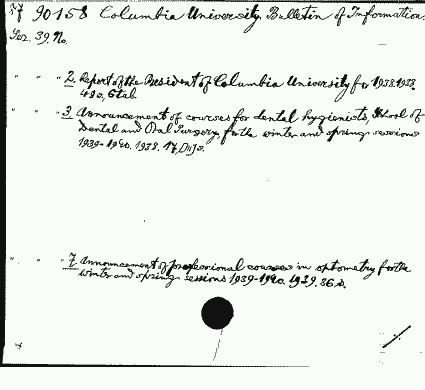 90158 Columbia University, Bulletin of Information.
Ser. 39. No.
" " " 2. Report of the President of Columbia University for 1938.1938.
48o, 6tab.
" " " 3. Announcement of courses for dental hygienists, School of
Dental and Oral Surgery, for the winter and spring sessions
1939-1940. 1938. 17,
" " " 7. Announcement of professional courses in optometry for the
winter and spring sessions 1939-1940. 1939. 36 s.